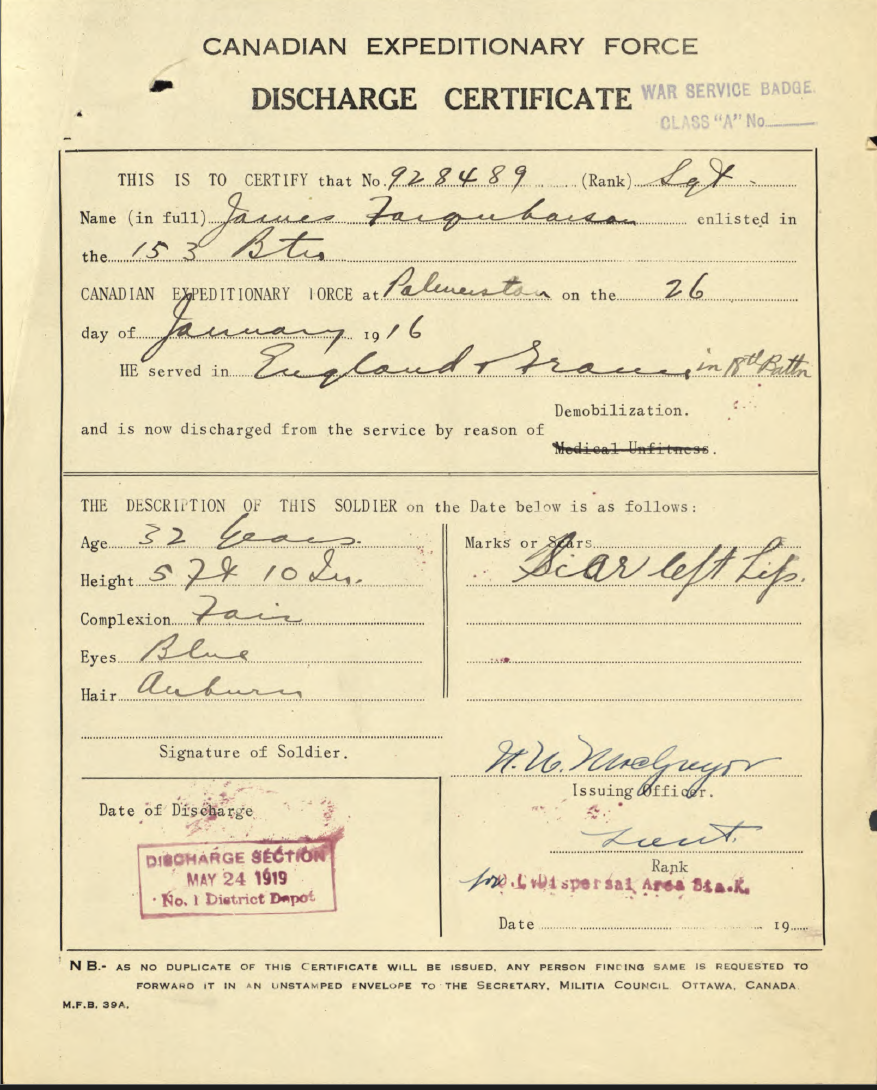 CANADIAN EXPEDITIONARY FORCE
DISCHARGE CERTIFICATE
WAR SERVICE BADGE.
CLASS "A" No
THIS IS TO CERTIFY that No. 928489 (Rank) Sgt.
Name (in full) James Farquharson enlisted in
the 153 Btn
CANADIAN EXPEDITIONARY FORCE at Palmerston on the 26
day of January 1916
HE served in England & France in 18th Battn
Demobilization.
and is now discharged from the service by reason of
Medical Unfitness.
THE DESCRIPTION OF THIS SOLDIER on the Date below is as follows:
Age 32 Years.
Height 5 Ft 10 In.
Complexion Fair
Eyes Blue
Hair Auburn
Marks or Scars
Scar left Lip.
Signature of Soldier.
MacGregor
Issuing Officer.
Lieut.
Rank
for O.C. Dispersal Area Sta. K.
Date 19
Date of Discharge
DISCHARGE SECTION
MAY 24 1919
No. 1 District Depot
NB.- AS NO DUPLICATE OF THIS CERTIFICATE WILL BE ISSUED, ANY PERSON FINDING SAME IS REQUESTED TO
FORWARD IT IN AN UNSTAMPED ENVELOPE TO THE SECRETARY, MILITIA COUNCIL OTTAWA, CANADA.
M.F.B. 39A.